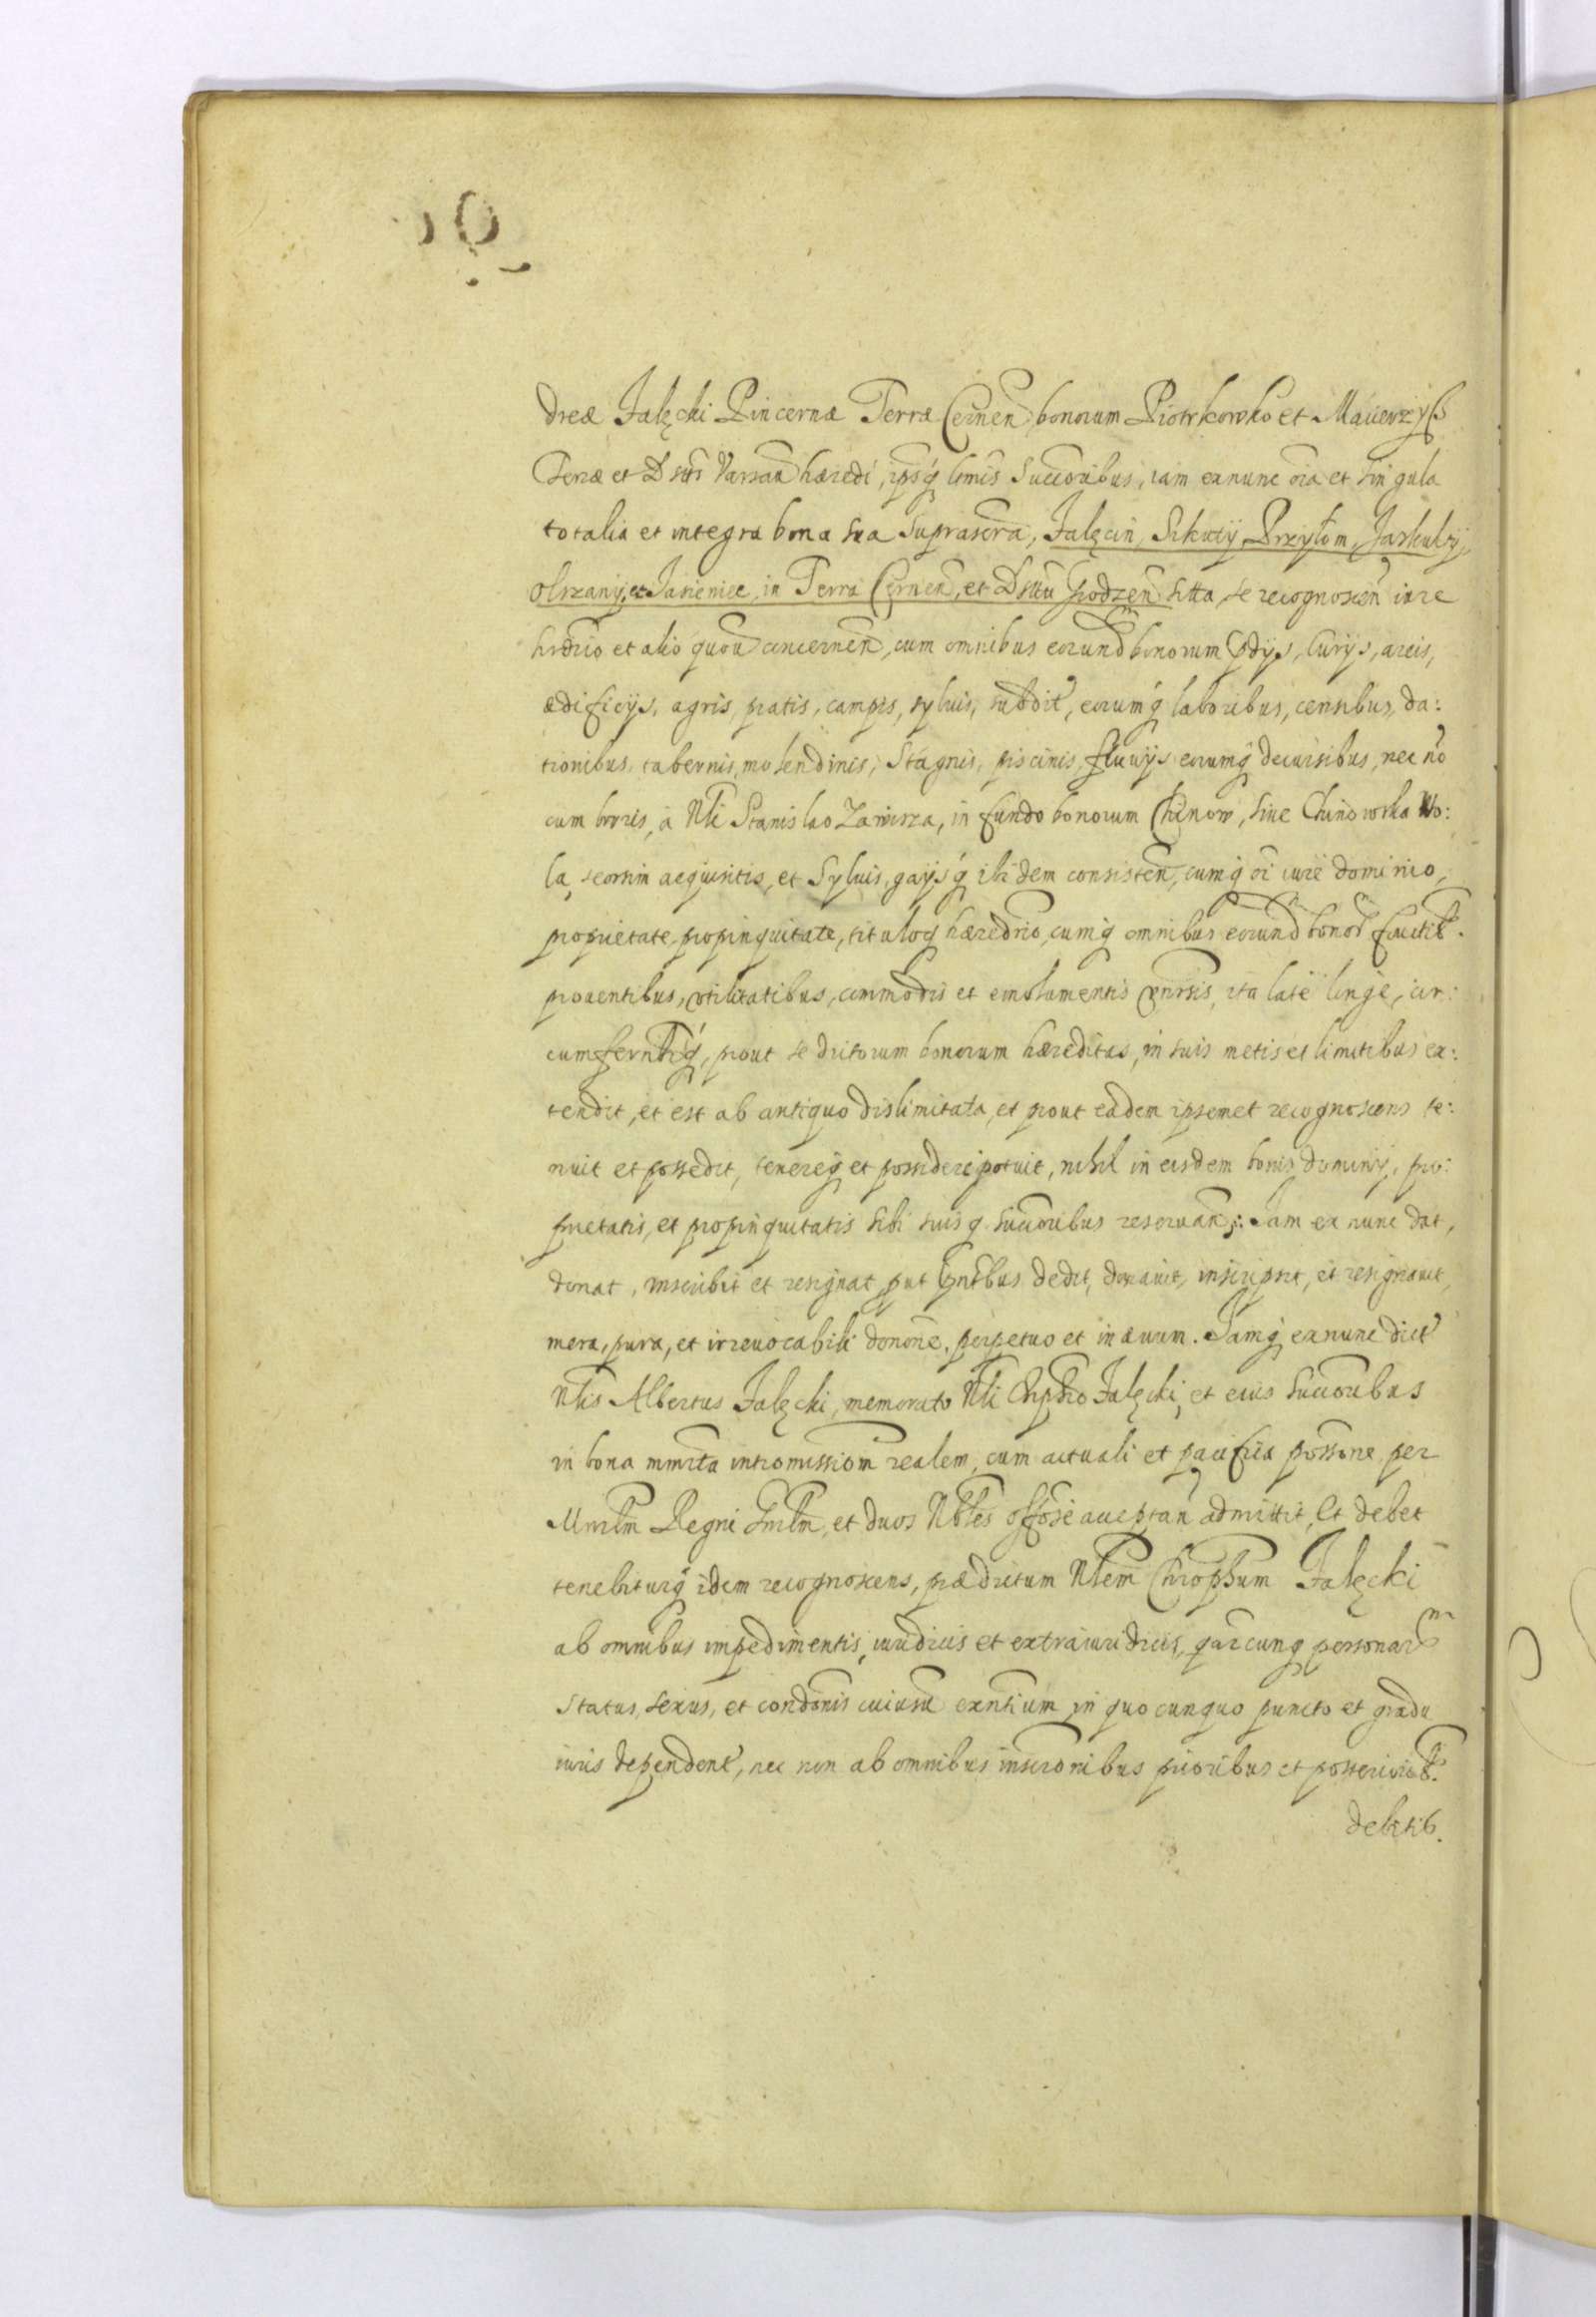 dreæ Jalęcki Pincernæ Terræ Cernen bonorum Piotrkowko et Macierzysz
Terræ et Dsttus Varsau hæredi, ipsq̃ ltmis Succoribus, iam exnunc oīa et singula
totalia et integra bona sua suprascrā, Jalęcin, Sikuty, Przyłom, Jaskulzy,
Olszany, et Jasieniec, in Terra Cernen, et Dsttu Grodzen sitta, se recognoscen iure
hrdrio et alio quou concernen, cum omnibus eorund bonorum pdys, curijs, areis,
ædificijs, agris, pratis, campis, syluis, subdit, eorumq̃ laboribus, censibus, da:
tionibus, tabernis, molendinis, stagnis, piscinis, fluuijs eorumq̃ decursibus, nec nō
cum borris, à Nli Stanislao Zawisza, in fundo bonorum Chinow, siue Chinowska Wo:
la, seorsim acquisitis, et Syluis, gaijsq̃ ibidem consisten, cumq̃ oī iure dominio,
proprietate, propinquitate, tituloq̃ hæredrio, cumq̃ omnibus eorund bonor fructib.
prouentibus, vtilitatibus, commodis et emolumentis vnirsis, ita late longe, cir:
cumferntrq̃, prout se dictorum bonorum hæreditas, in suis metis et limitibus ex:
tendit, et est ab antiquo dislimitata, et prout eadem ipsemet recognoscens te:
nuit et possedit, tenereq̃ et possidere potuit, nihil in eisdem bonis dominij, pro:
prietatis, et propinquitatis sibi suisq̃ succoribus reseruan: Jam ex nunc dat,
donat, inscribit et resignat, put pntbus dedit, donauit, inscripsit, et resignauit,
mera, pura, et irreuocabili donone, perpetuo et in æuum. Jamq̃ exnunc dict
Nlis Albertus Jalęcki, memorato Nli Chrphro Jalęcki, et eius succoribus
in bona mmrta intromissiom realem, cum actuali et pacifica possone per
Mnrlm Regni Gnrlm, et duos Nbles offose acceptan admittit, Et debet
tenebiturq̃ idem recognoscens, prædictum Nlem Chrophum Jalęcki
ab omnibus impedimentis, iuridicis et extraiuridicis, quarcunq̃ personar
status, sexus, et condonis cuiusu exntium, in quocunquo puncto et gradu
iuris dependent, nec non ab omnibus inscronibus prioribus et posteriorib.
debitib.